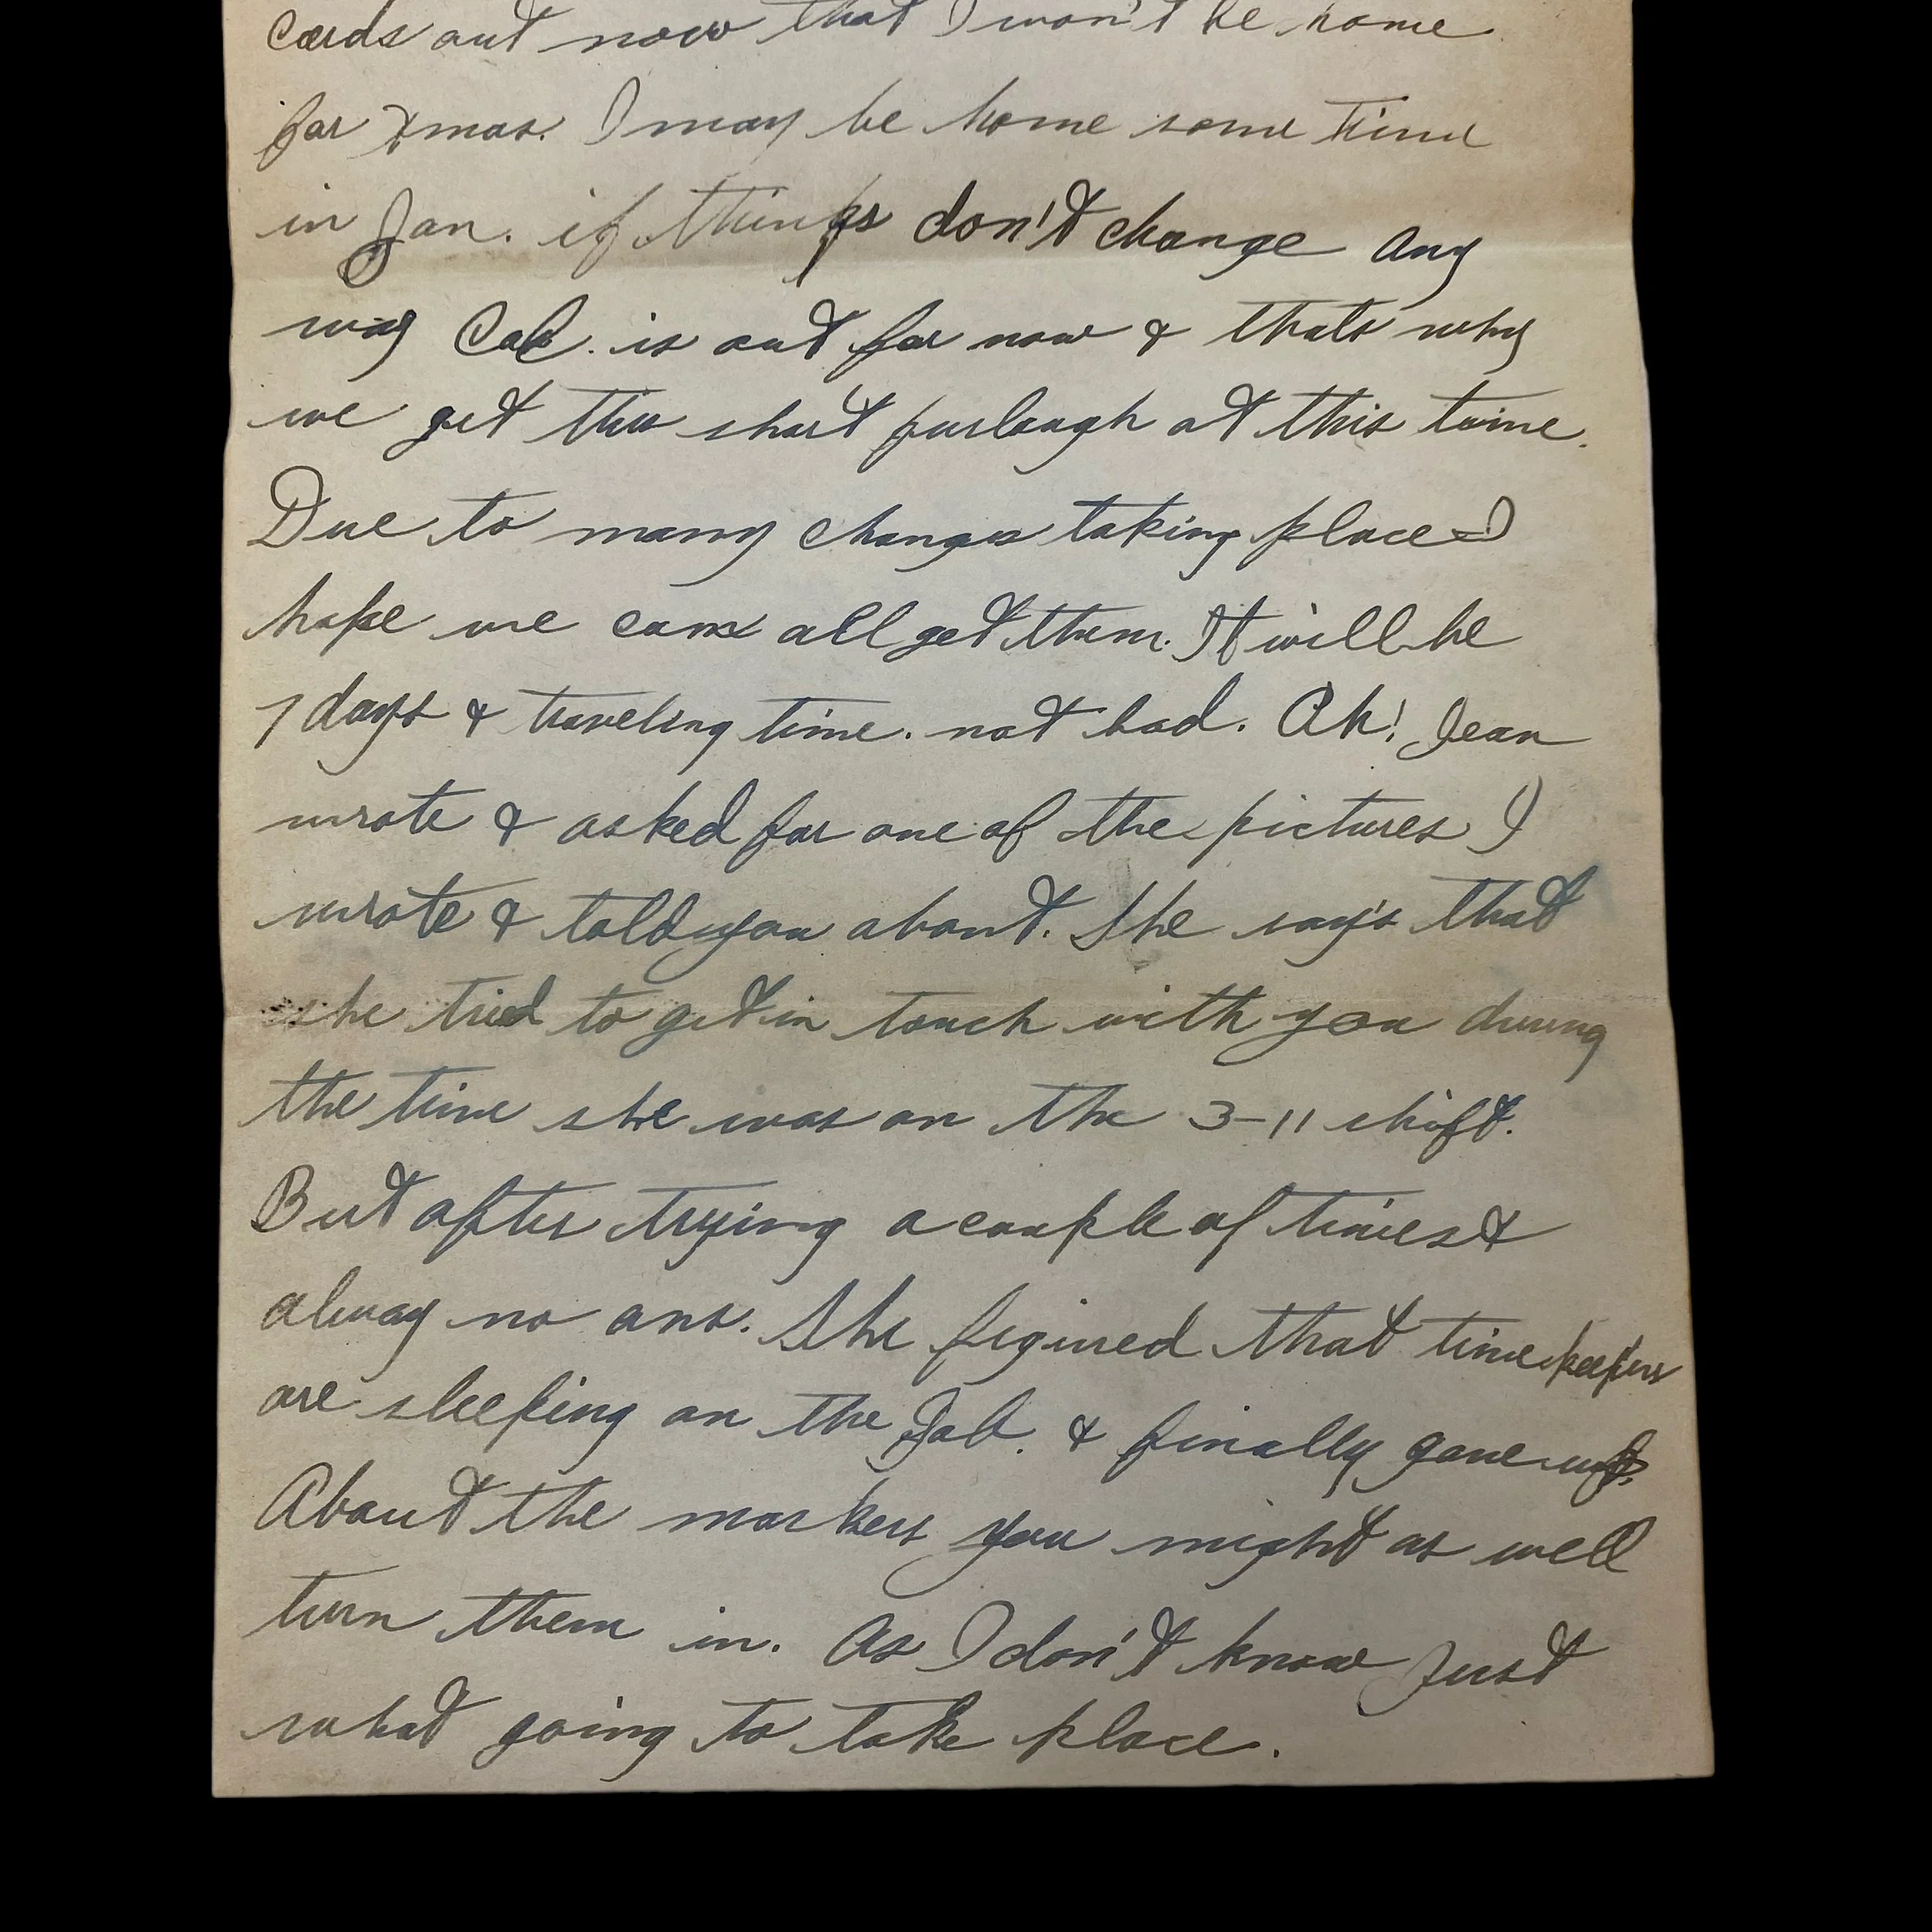 cards out now that I won't be home
for Xmas. I may be home some time
in Jan. if things don't change any
way Cal. is out for now & thats why
we get this short furlough at this time.
Due to many changes taking place I
hope we can all get them. It will be
7 days & traveling time. not bad. Oh! Jean
wrote & asked for one of the pictures I
wrote & told you about. She say's that
she tried to get in touch with you during
the time she was on the 3-11 shift.
But after trying a couple of times &
alway no ans. She figured that timekeepers
are sleeping on the Job. & finally gave up.
About the markers you might as well
turn them in. As I don't know Just
what going to take place.